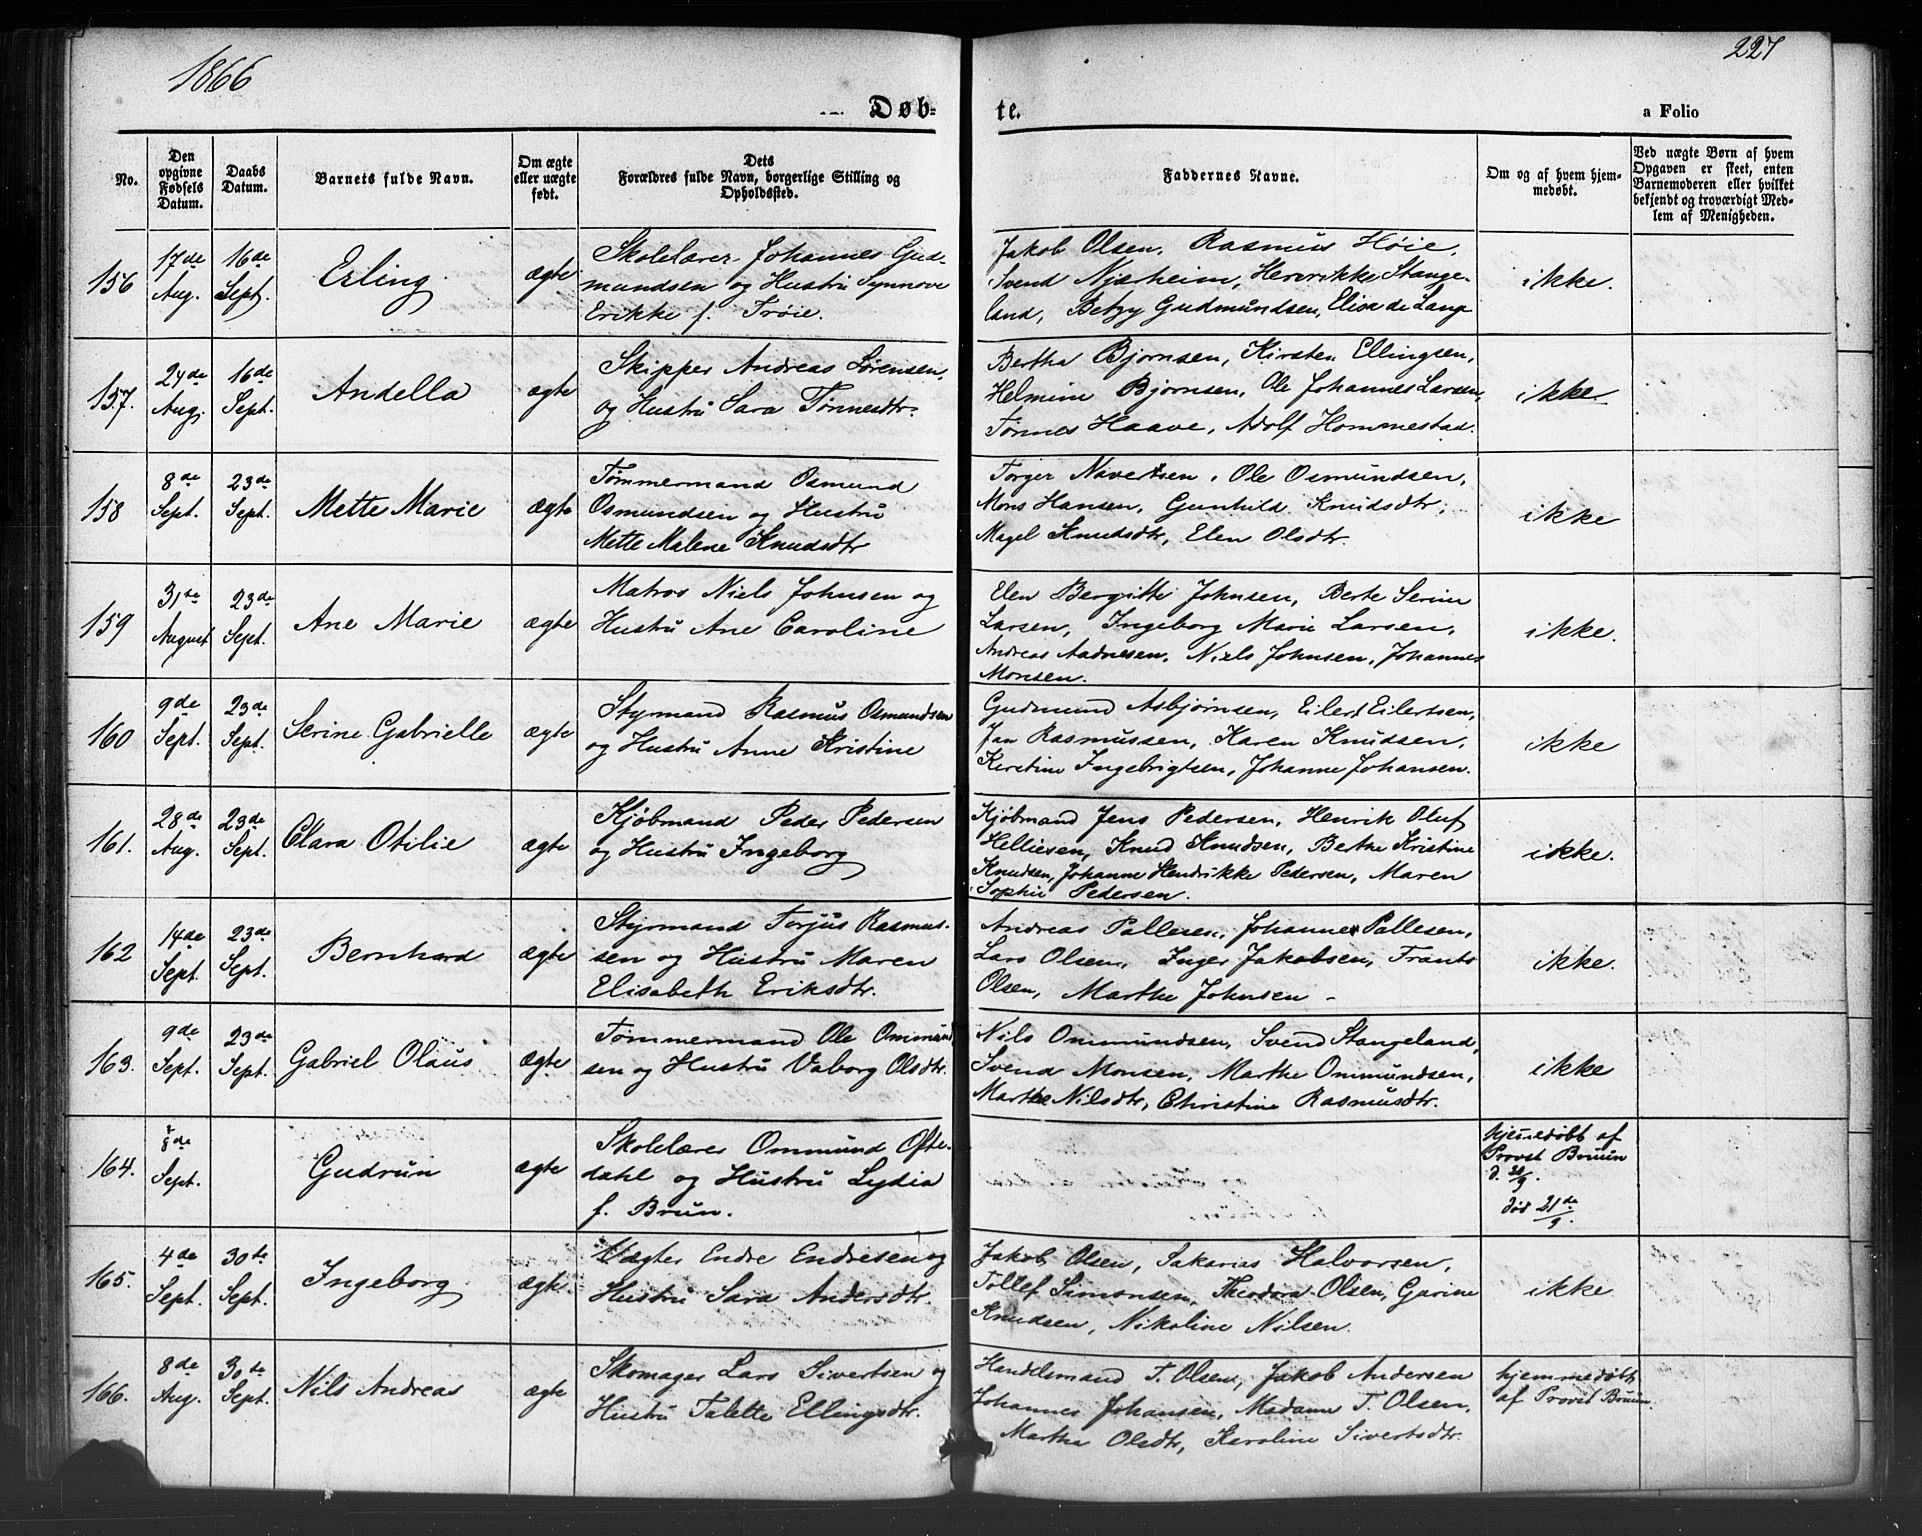 1866
227
Døb-
te.
a Folio
No.
Den opgivne Fødsels Datum.
Daabs Datum.
Barnets fulde Navn.
Om ægte eller uægte født.
Dets Forældres fulde Navn, borgerlige Stilling og Opholdssted.
Faddernes Navne.
Om og af hvem hjemmedøbt.
Ved uægte Børn af hvem Opgaven er skeet, enten Barnemoderen eller hvilket bekjendt og troværdigt Medlem af Menigheden.
156
17de Aug.
16de Sept.
Erling
ægte
Skolelærer Johannes Gud-
mundsen og Hustru Synnove
Erikke f. Trøie.
Jakob Olsen, Rasmus Høie,
Svend Njærheim, Henrikke Stange-
land, Betzy Gudmundsen, Elise de Lange
ikke.
157.
24de Aug.
16de Sept.
Andella
ægte
Skipper Andreas Sørensen,
og Hustru Sara Tønnesdtr.
Bertha Bjørnsen, Kirsten Ellingsen,
Helmine Bjørnsen, Ole Johannes Larsen,
Tønnes Haave, Adolf Hommestad.
ikke
158
8de Sept.
23de Sept.
Mette Marie
ægte
Tømmermand Osmund
Osmundsen og Hustru
Mette Malene Knudsdtr
Torger Navertsen, Ole Osmundsen,
Mons Hansen, Gunhild Knudsdtr,
Magel Knudsdtr, Elen Olsdtr.
ikke
159
31te August
23de Sept.
Ane Marie
ægte
Matros Niels Johnsen og
Hustru Ane Caroline
Elen Bergitte Johnsen, Berte Serine
Larsen, Ingeborg Marie Larsen,
Andreas Aadnesen, Niels Johnsen, Johannes
Monsen.
ikke.
160
9de Sept.
23de Sept.
Serine Gabrielle
ægte
Styrmand Rasmus Osmundsen
og Hustru Anne Kristine
Gudmund Asbjørnsen, Eilert Eilertsen,
Jan Rasmussen, Karen Knudsen,
Kirstine Ingebrigtsen, Johanne Johansen.
ikke
161.
28de Aug.
23de Sept.
Clara Otilie
ægte
Kjøbmand Peder Pedersen
og Hustru Ingeborg
Kjøbmand Jens Pedersen, Henrik Oluf
Helliesen, Knud Knudsen, Berthe Kristine
Knudsen, Johanne Hendrikke Pedersen, Maren
Sophie Pedersen.
ikke.
162
14de Sept.
23de Sept.
Bernhard
ægte
Styrmand Torjus Rasmus-
sen og Hustru Maren
Elisabeth Eriksdtr.
Andreas Pallesen, Johannes Pallesen,
Lars Olsen, Inger Jakobsen, Frants
Olsen, Marthe Johnsen -
ikke.
163.
9de Sept.
23de Sept.
Gabriel Olaus
ægte
Tømmermand Ole Ommund
sen og Hustru Vaborg Olsdtr.
Nils Ommundsen, Svend Stangeland,
Svend Monsen, Marthe Ommundsen,
Marthe Nilsdtr, Christine Rasmusdtr.
ikke
164.
8de Sept.
Gudrun
ægte
Skolelærer Ommund Ofte-
dahl og Hustru Lydia
f. Brun.
hjemmedøbt af
Provst Bruun
d. 20/9.
død 21de/9.
165.
4de Sept.
30te Sept.
Ingeborg
ægte.
Vægter Endre Endresen og
Hustru Sara Andersdtr.
Jakob Olsen, Sakarias Halvorsen,
Tollef Simonsen, Theodora Olsen, Gurine
Knudsen, Nikoline Nilsen.
ikke
166.
8de Aug.
30te Sept.
Nils Andreas
ægte
Skomager Lars Sivertsen og
Hustru Talette Ellingsdtr.
Handelsmand T. Olsen, Jakob Andersen
Johannes Johansen, Madame T. Olsen,
Martha Olsdtr, Karoline Sivertsdtr.
hjemmedøbt
af Provst Bruun.